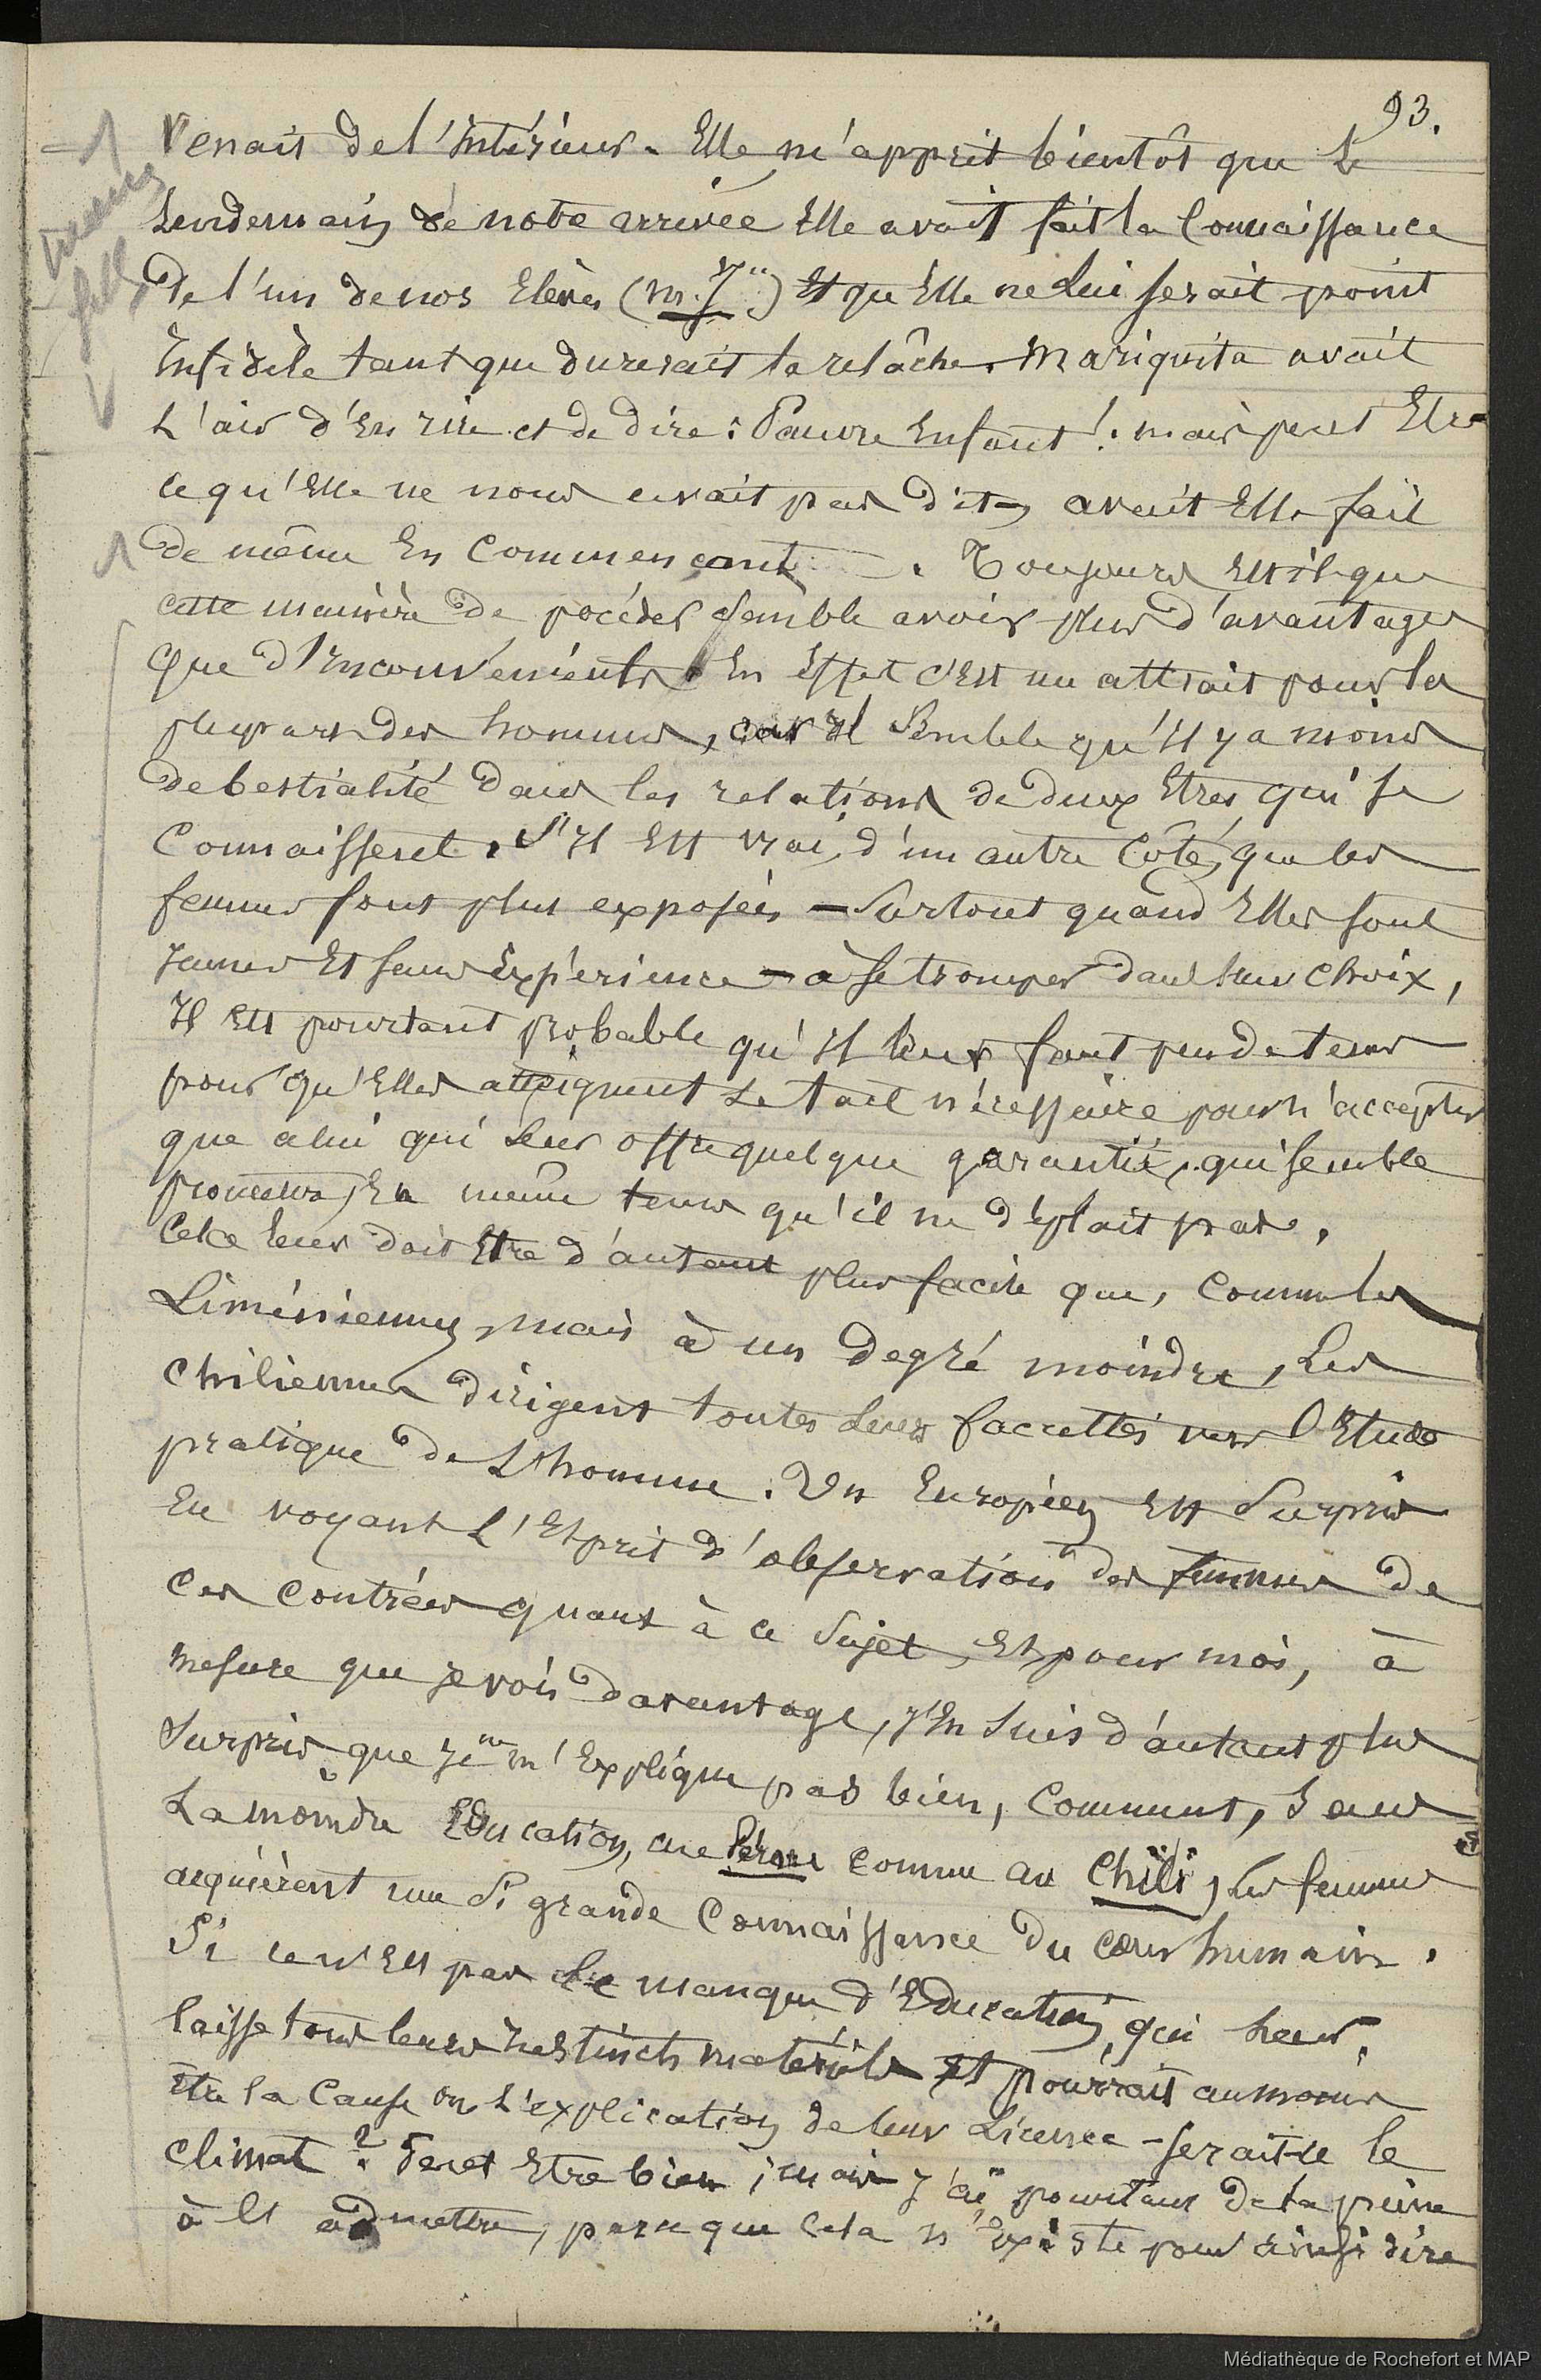 93.
Venait de l'Intérieur. Elle m'apprit bientôt que Le
Lendemain de notre arrivée Elle avait fait la Connaissance
De l'un de nos Elèves (Mr. J") Et qu'Elle ne Lui serait point
Infidèle tant que durerait la relâche. Mariquita avait
L'air d'En rire et de dire : Pauvre Enfant ! mais peut Etre
ce qu'Elle ne nous avait pas dit, avait Elle fait
de même En Commençant. Toujours Est il que
cette manière de pocéder semble avoir plus d'avantages
Que d'Inconvénients. En Effet c'Est un attrait pour la
plupart des hommes, car Il Semble qu'Il y a moins
de bestialité dans les relations de deux Etres qui se
Connaissent. S'Il Est vrai, d'un autre Côté, que les
femmes sont plus exposées — Surtout quand Elles sont
Jeunes Et sans Expérience — à se tromper dans leur choix,
Il Est pourtant probable qu'Il leur faut peu de tems
pour qu'Elles atteignent Le tact nécessaire pour n'accepter
que celui qui Leur offre quelque garantie, qui semble
En même tems qu'il ne déplait pas.
Cela leur doit Etre d'autant plus facile que, Comme les
Liméniennes, mais à un degré moindre, Les
Chiliennes dirigent toutes Leurs facultés vers l'Etude
pratique de L'homme. Un Européen Est Surpris
En voyant L'Esprit d'observation des femmes de
Ces Contrées quant à ce Sujet, Et pour moi, à
mesure que je vois davantage, J'En suis d'autant plus
Surpris que Je ne m'Explique pas bien, Comment, Sans
La moindre Education, au Pérou comme au Chili, les femmes
acquièrent une Si grande Connaissance du cœur humain.
Si ce n'Est pas le manque d'Education, qui leur
laisse tous leurs Instincts matériels et pourrait au moins
Etre la Cause ou L'explication de leur Licence - serait-ce le
Climat ? Peut Etre bien ; mais J'ai pourtant de la peine
à l'admettre, parce que Cela n'Existe pour ainsi dire